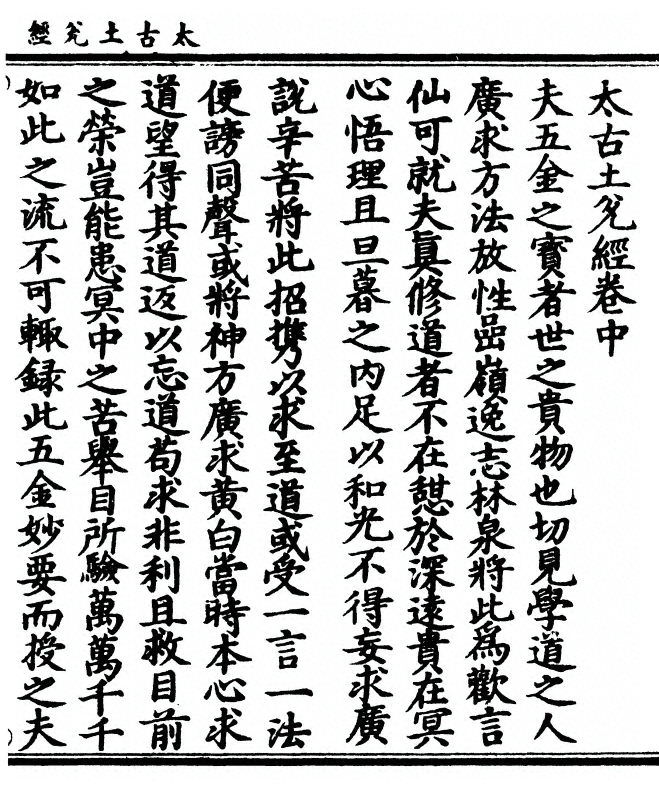 太古土兊經
太古土兊經卷中
夫五金之寳者世之貴物也切見學道之人
廣求方法放性嵒嶺逸志林泉將此爲歡言
仙可就夫真修道者不在憇於深遠貴在冥
心悟理且旦暮之内足以和光不得妄求廣
說辛苦將此招擕以求至道或受一言一法
便謗同聲或將神方廣求黄白當時本心求
道望得其道返以忘道苟求非利且救目前
之榮豈能患冥中之苦舉目所驗萬萬千千
如此之流不可輙録此五金妙要而授之夫